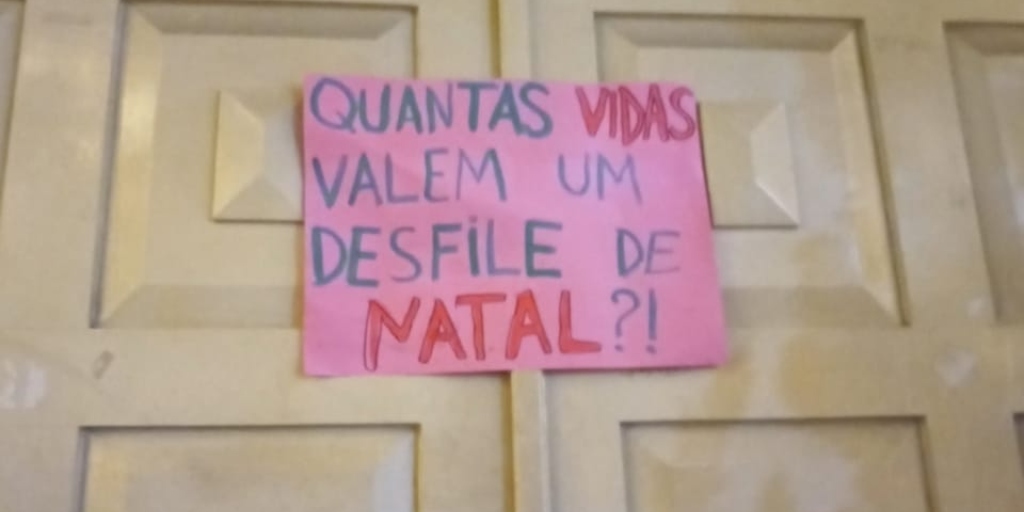 QUANTAS VIDAS
VALEM UM
DESFILE DE
NATAL?!